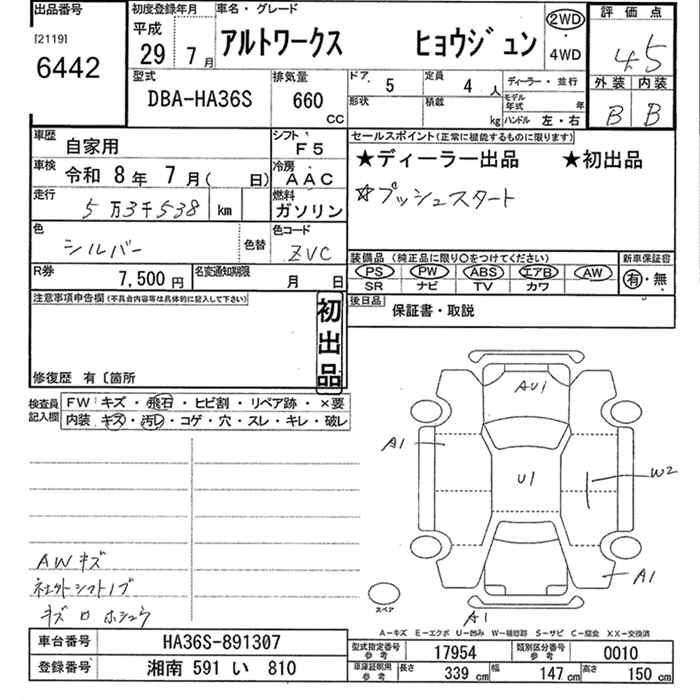 出品番号
[2119]
6442
初度登録年月
平成
29 7 月
車名・グレード
アルトワークス ヒョウジュン
2WD
・
4WD
評価点
4.5
外装 内装
B B
型式
DBA-HA36S
排気量
660
CC
ドア 5
定員 4 人
形状
積載 kg
ディーラー・並行
モデル年式 年
ハンドル 左・右
車歴 自家用
シフト F5
車検 令和 8 年 7 月( 日)
冷房 AAC
走行 5万3千538 km
燃料 ガソリン
色 シルバー
色替
色コード ZVC
R券 7,500 円
名変通知期限 月 日
セールスポイント(正常に機能するものに限ります)
★ディーラー出品 ★初出品
☆プッシュスタート
装備品 (純正品に限り○をつけてください)
PS PW ABS エアB AW
SR ナビ TV カワ
新車保証書
有・無
後日品 保証書・取説
注意事項申告欄(不具合内容等は具体的に記入して下さい)
初出品
修復歴 有〔箇所
検査員記入欄
FW: キズ・飛石・ヒビ割・リペア跡・×要
内装: キズ・汚レ・コゲ・穴・スレ・キレ・破レ
AWキズ
社外シフトノブ
キズロ ホシュウ
AU1
A1
U1
W2
A1
A1
スペア
A―キズ E―エクボ U―凹み W―補修跡 S―サビ C―腐食 XX―交換済
車台番号 HA36S-891307
登録番号 湘南 591 い 810
型式指定番号参考 17954
類別区分番号参考 0010
車庫証明用参考 長さ 339 cm 幅 147 cm 高さ 150 cm